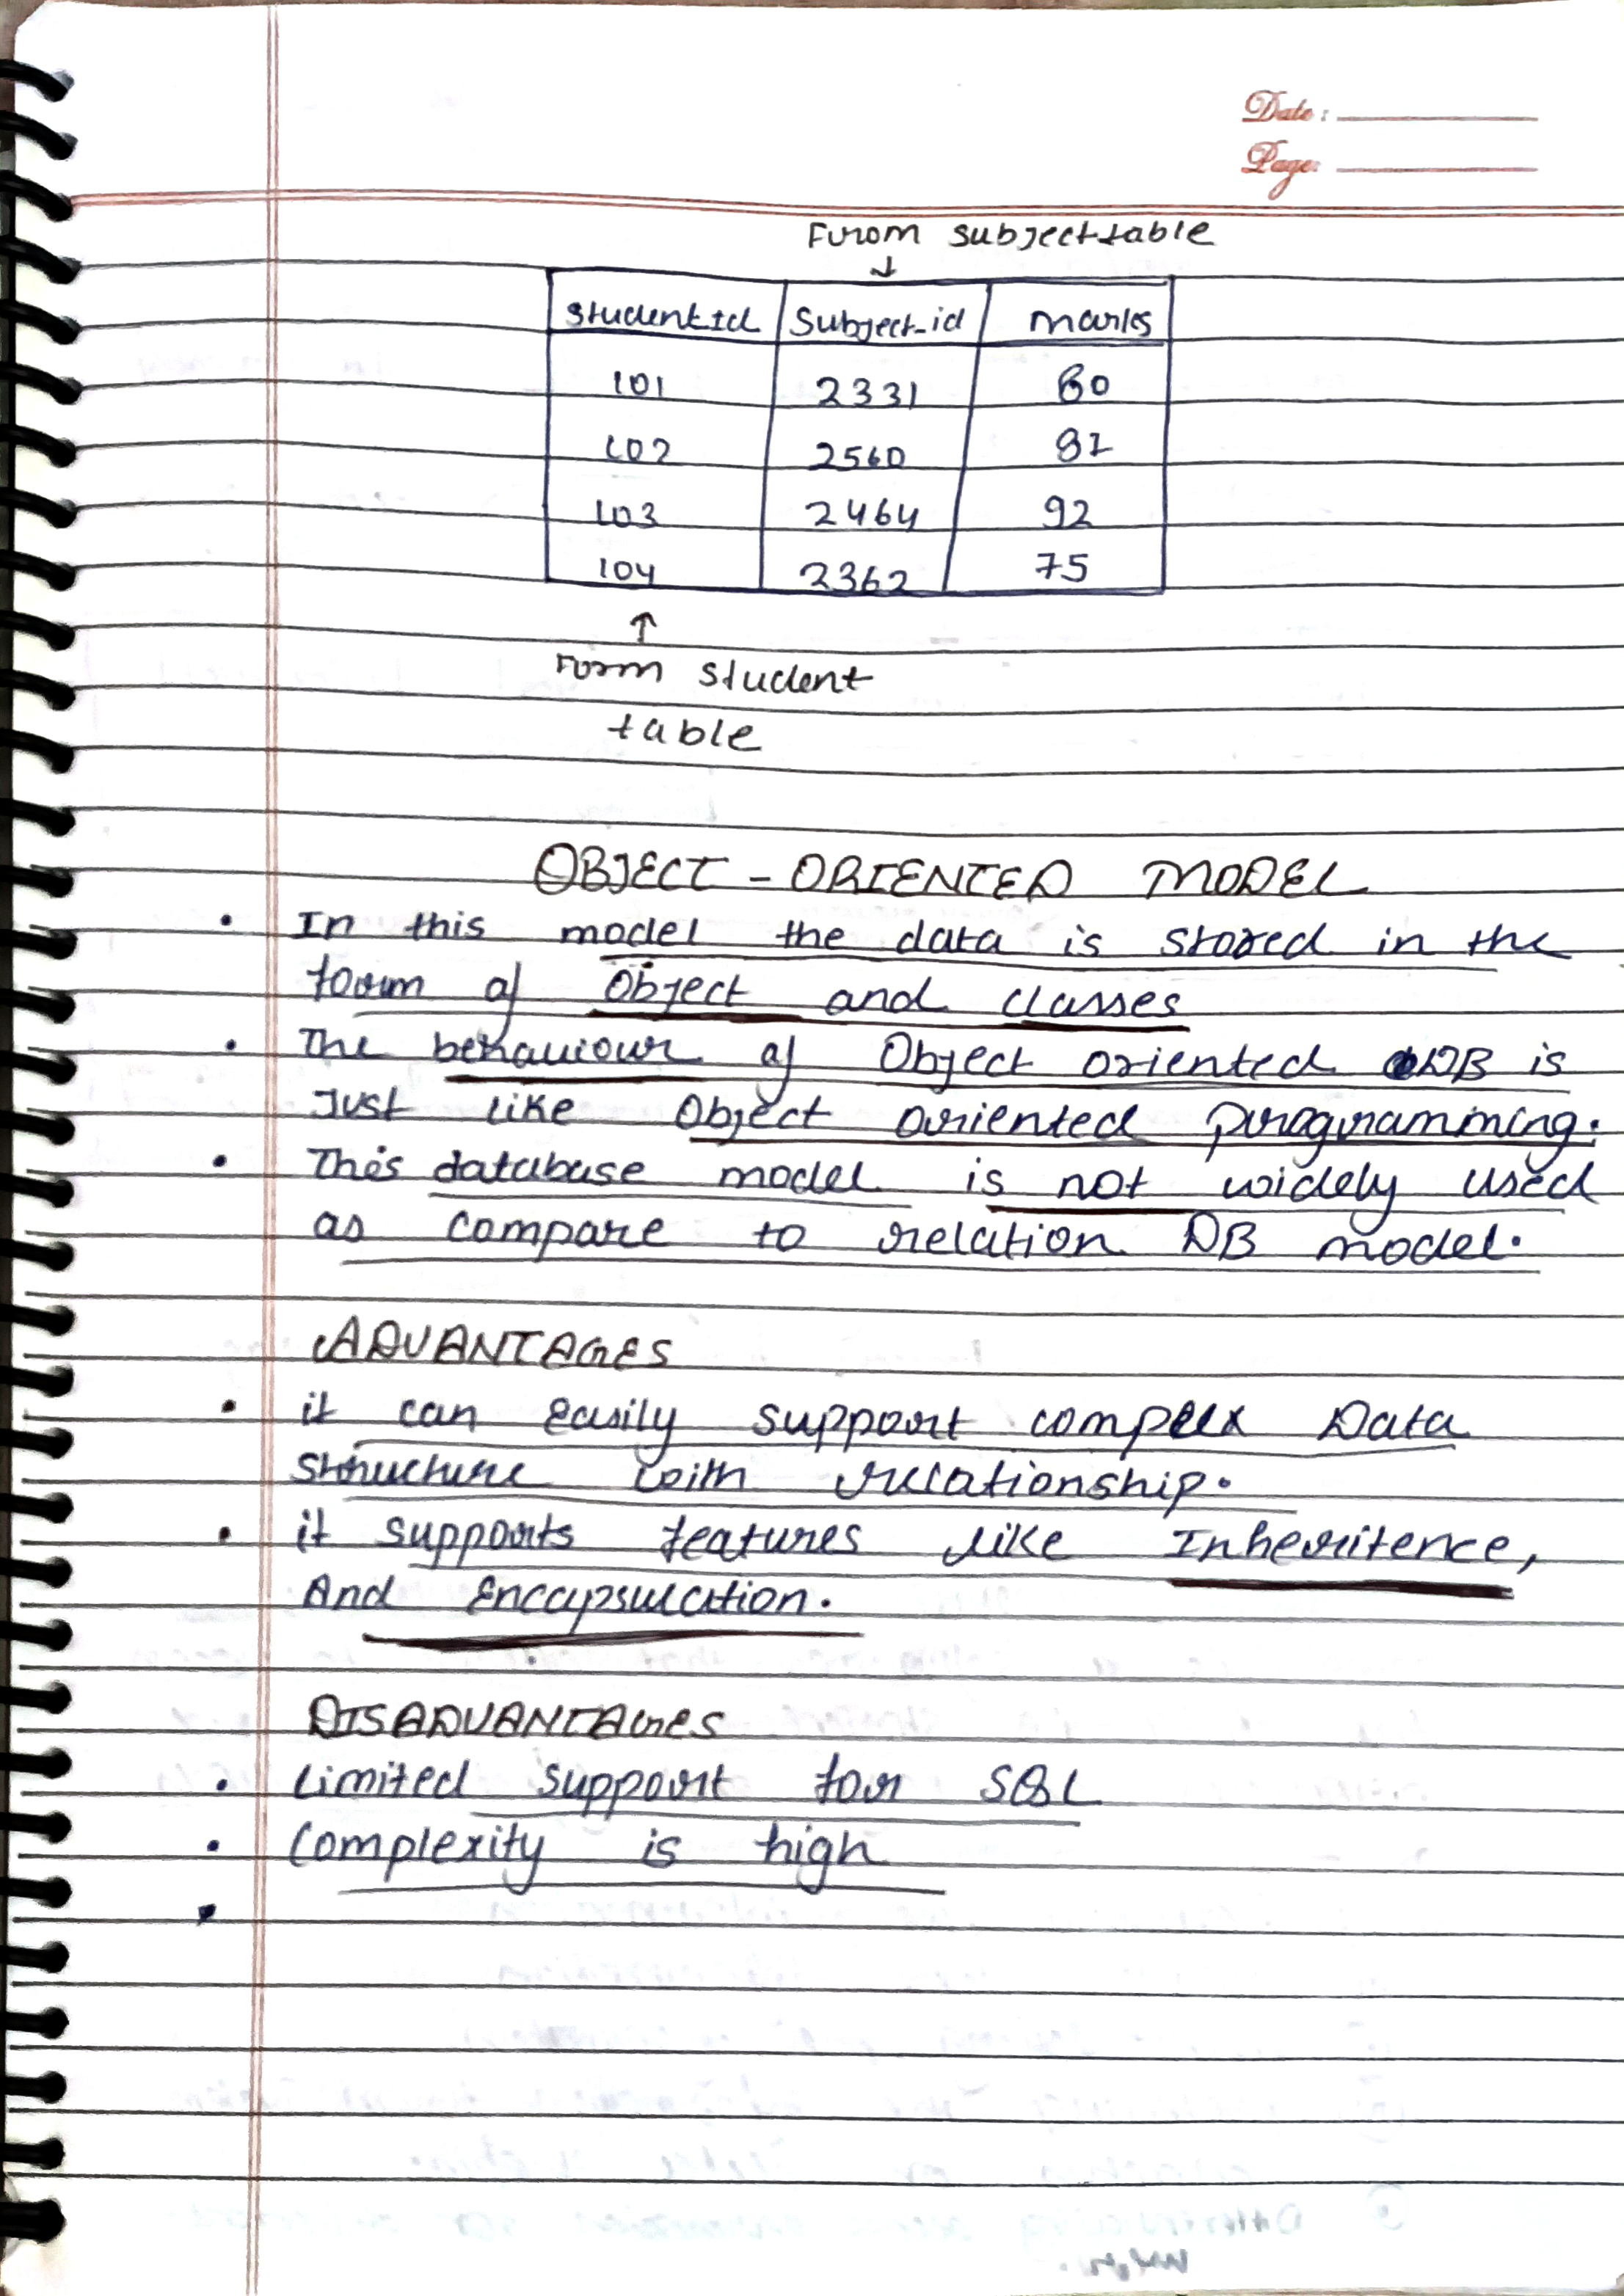 Date:
Page:
From subject table
↓
student id Subject_id marks
101 2331 60
102 2560 81
103 2464 92
104 2362 75
↑
Form student
table
OBJECT - ORIENTED MODEL
• In this model the data is stored in the
form of Object and classes
• The behaviour of Object oriented DB is
Just like Object oriented programming.
• This database model is not widely used
as compare to relation DB model.
ADVANTAGES
• it can easily support complex Data
structure with relationship.
• it supports features like Inheritence,
And Encapsulation.
DISADVANTAGES
• Limited support for SQL
• Complexity is high
•